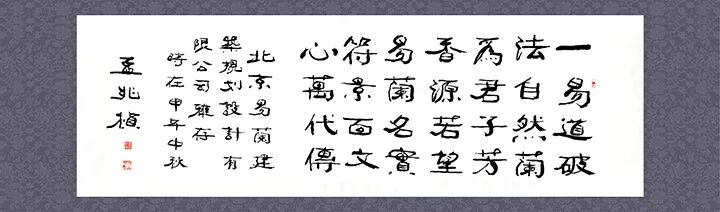 一易道破
法自然蘭
為君子芳
香源若望
易蘭名實
符景面文
心萬代傳
北京易蘭建
築規划設計有
限公司雅存
時在甲午中秋
孟兆禎